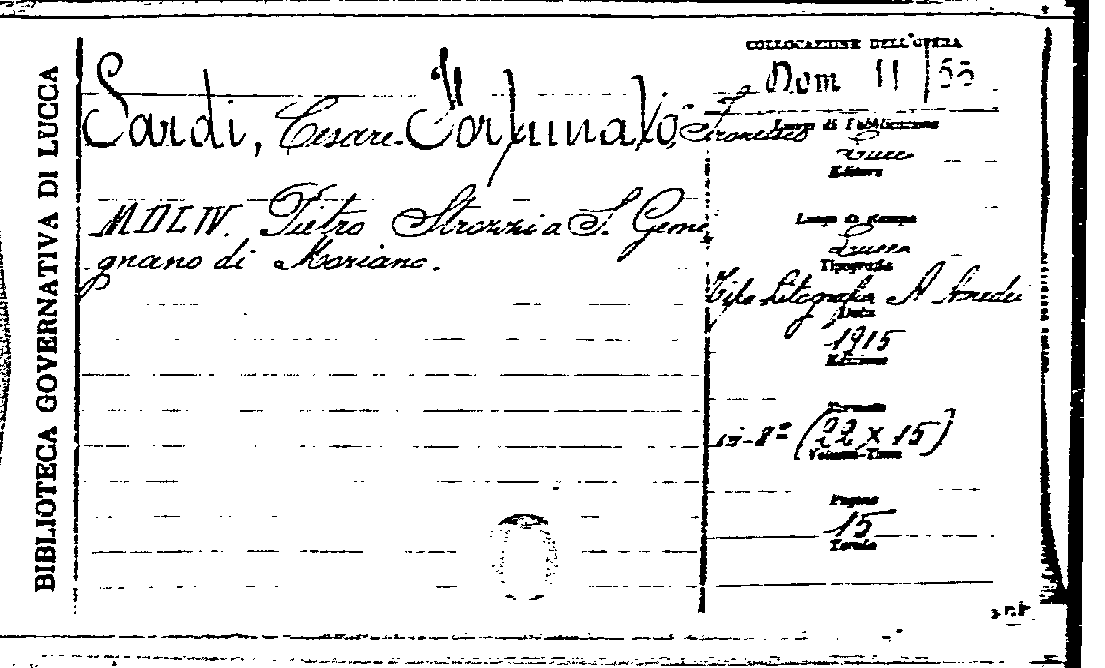 BIBLIOTECA GOVERNATIVA DI LUCCA
COLLOCAZIONE DELL'OPERA
Dom II 53
Sardi, Cesare Fortunato Francesco
Luogo di Pubblicazione
Lucca
Editore
MDLIV. Pietro Strozzi a S. Gemi
gnano di Moriano.
Luogo di stampa
Lucca
Tipografia
Tipo Litografia A Amedei
Data
1915
Edizione
Formato
in-8º (22 x 15)
Volume-Tomo
Pagine
15
Tavole